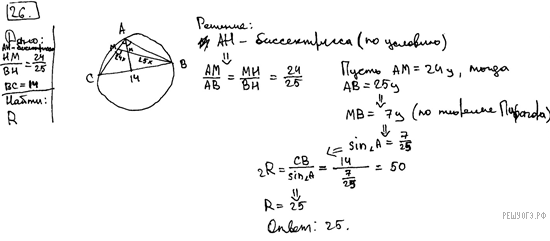 26.
Дано:
AH - биссектриса
HM/BH = 24/25
BC = 14
Найти:
R
A
M
24x
25x
C
14
B
Решение:
AH - биссектриса (по условию)
⇓
AM/AB = MH/BH = 24/25
Пусть AM = 24y, тогда
AB = 25y
⇓
MB = 7y (по теореме Пифагора)
⇓
sin∠A = 7/25
⇐
2R = CB/sin∠A = 14/(7/25) = 50
⇓
R = 25
Ответ: 25.
РЕШУОГЭ.РФ